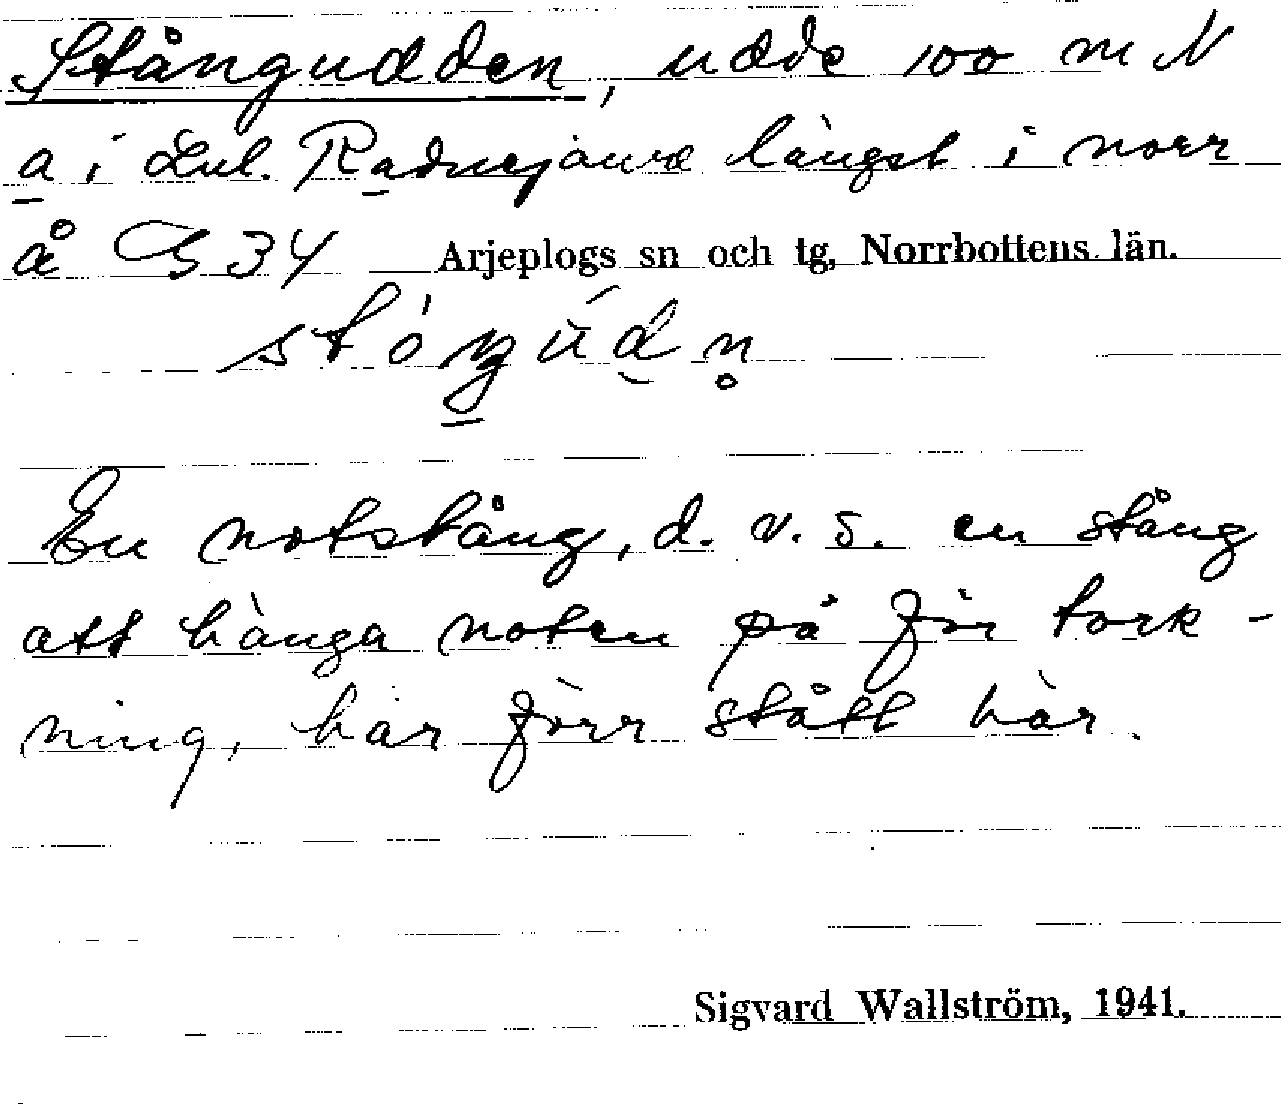 Stångudden, udde 100 m N
a i Lul. Radnejaure längst i norr
å G 34 Arjeplogs sn och tg, Norrbottens län.
En notstång, d. v. s. en stång
att hänga noten på för tork-
ning, har förr stått här.
Sigvard Wallström, 1941.